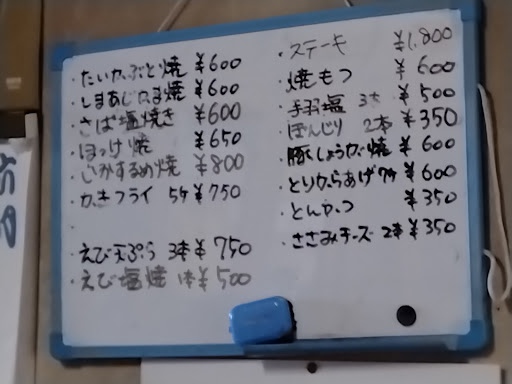 ・たいかぶと焼 ¥600
・しまあじかま焼 ¥600
・さば塩焼き ¥600
・ほっけ焼 ¥650
・いかするめ焼 ¥800
・かきフライ 5ケ ¥750
・えび天ぷら 3本 ¥750
・えび塩焼 1本 ¥500
・ステーキ ¥1,800
・焼もつ ¥600
・手羽塩 3本 ¥500
・ぼんじり 2本 ¥350
・豚しょうが焼 ¥600
・とりからあげ 7ケ ¥600
・とんかつ ¥350
・ささみチーズ 2本 ¥350